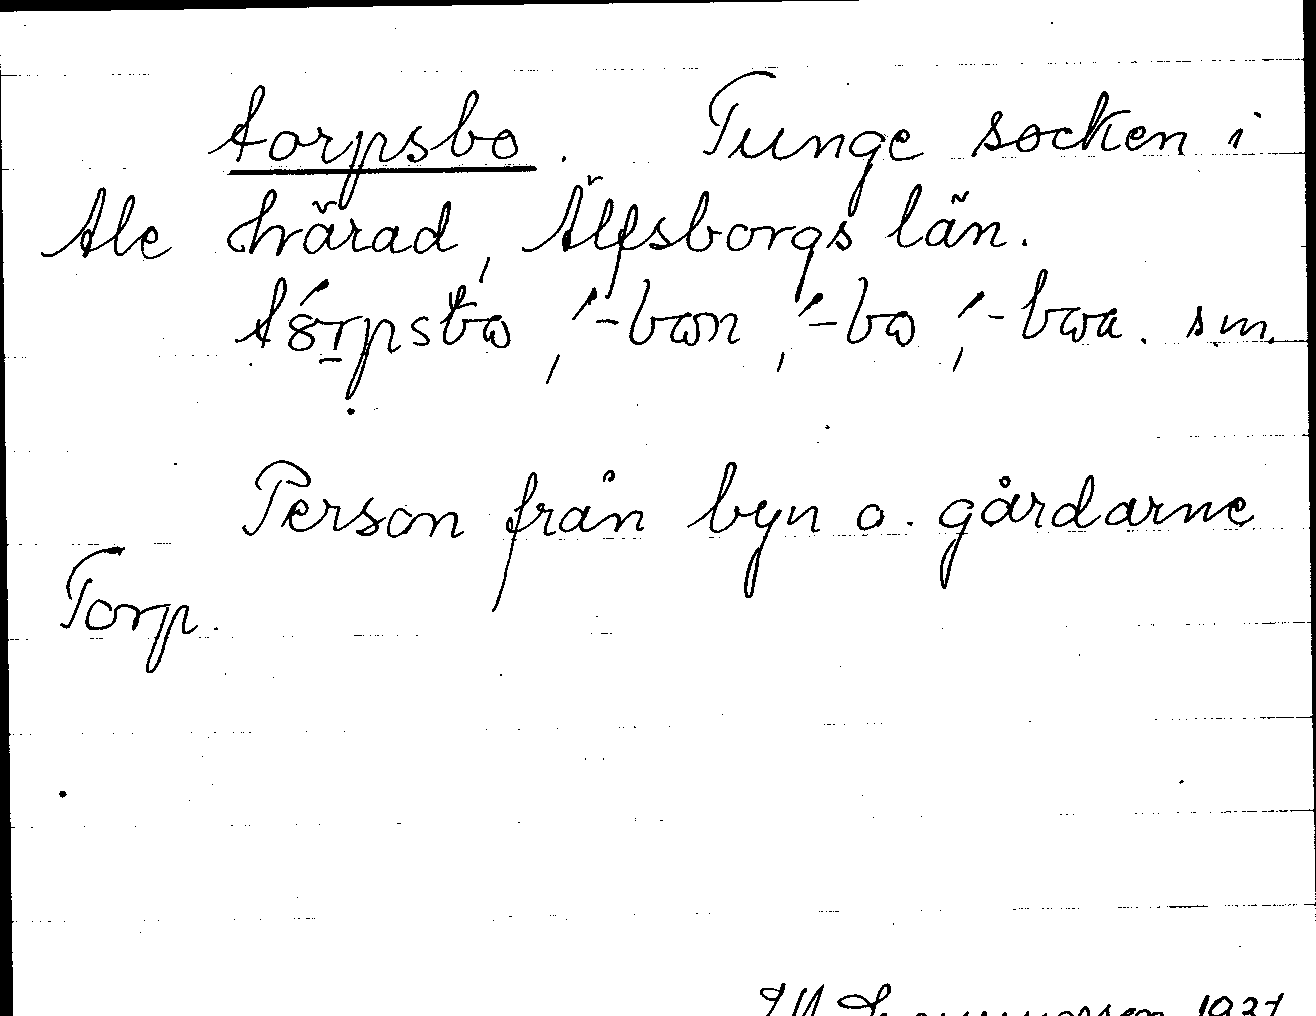 torpsbo. Tunge socken i
Ale härad, Älfsborgs län.
-bon, -bo, -boa. sm.
Person från byn o. gårdarne
Torp.
1931